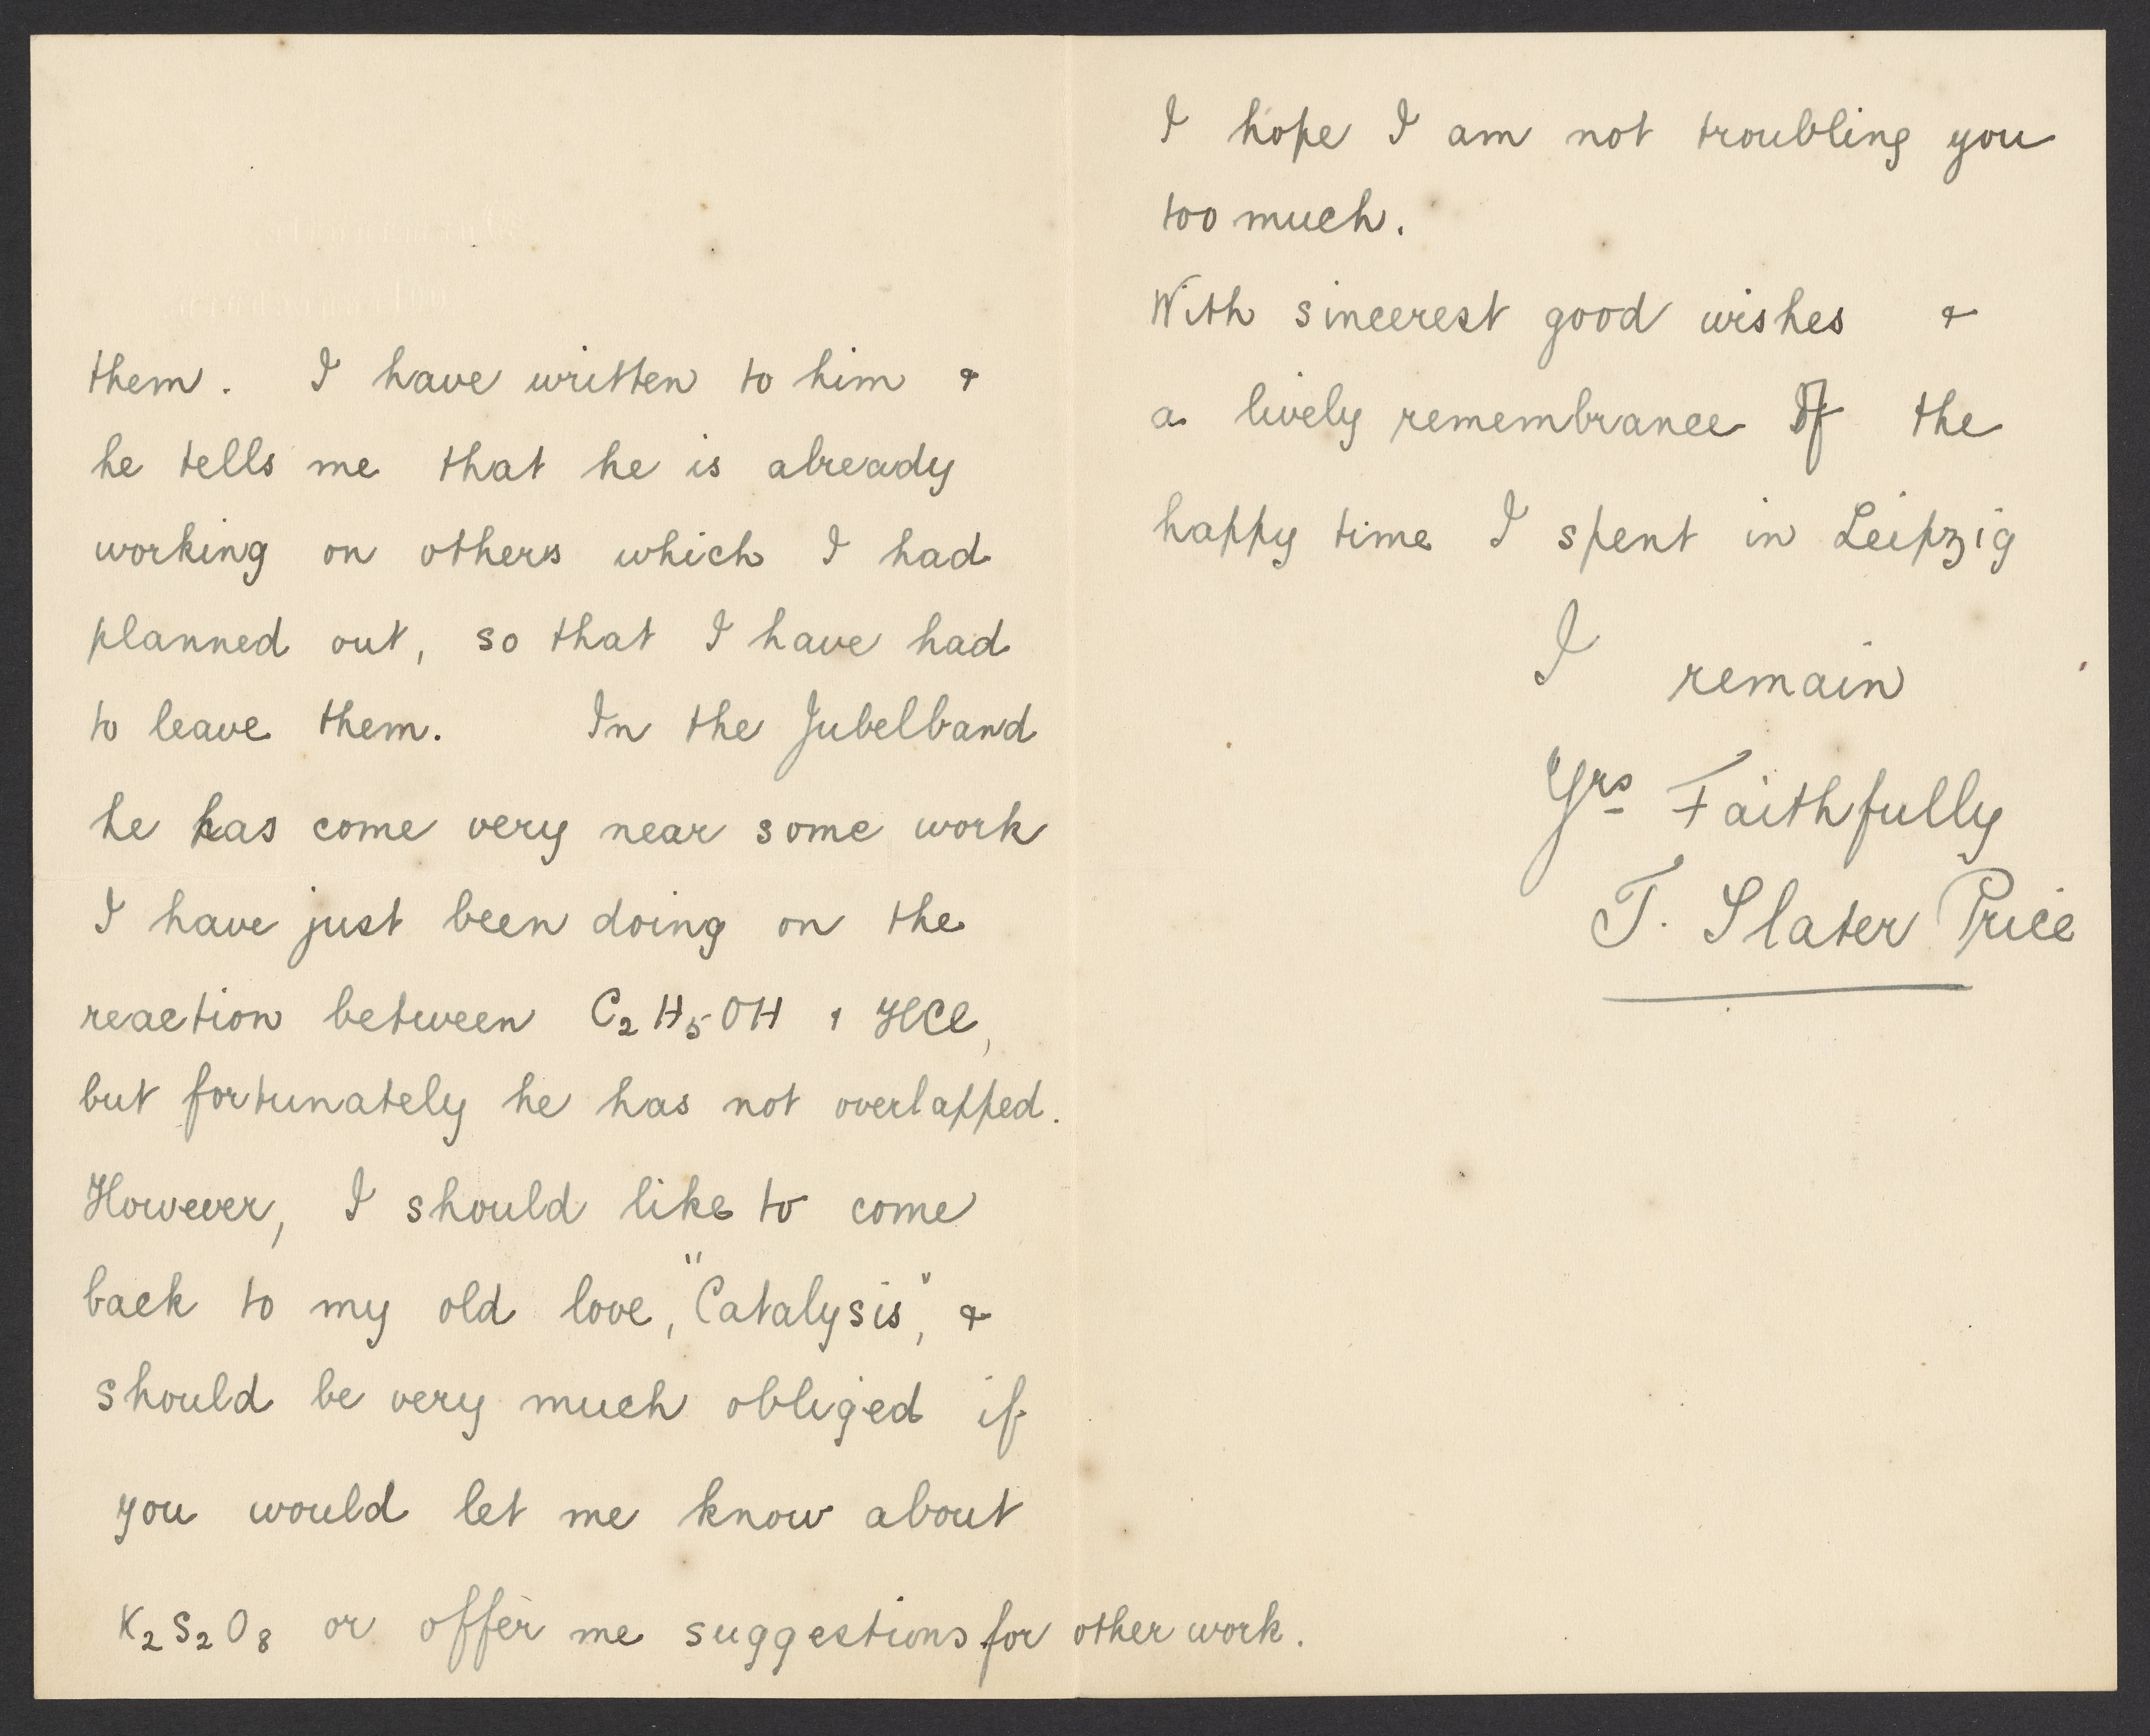 them. I have written to him &
he tells me that he is already
working on others which I had
planned out, so that I have had
to leave them. In the Jubelband
he has come very near some work
I have just been doing on the
reaction between C₂H₅OH & HCl,
but fortunately he has not overlapped.
However, I should like to come
back to my old love, "Catalysis", &
should be very much obliged if
you would let me know about
K₂S₂O₈ or offer me suggestions for other work.
I hope I am not troubling you
too much.
With sincerest good wishes &
a lively remembrance of the
happy time I spent in Leipzig
I remain
Yrs Faithfully
T. Slater Price